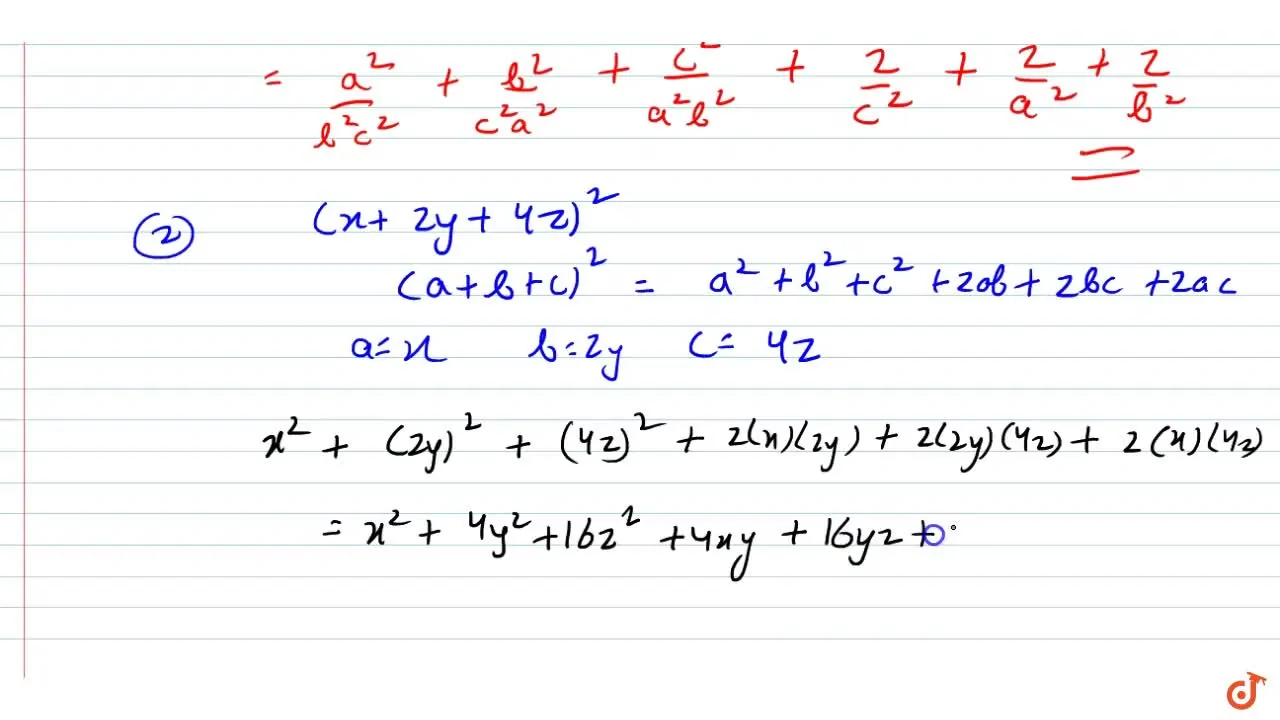 = a²/b²c² + b²/c²a² + c²/a²b² + 2/c² + 2/a² + 2/b²
② (x + 2y + 4z)²
(a + b + c)² = a² + b² + c² + 2ab + 2bc + 2ac
a = x b = 2y c = 4z
x² + (2y)² + (4z)² + 2(x)(2y) + 2(2y)(4z) + 2(x)(4z)
= x² + 4y² + 16z² + 4xy + 16yz +